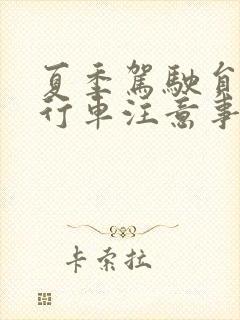 夏季駕駛員
行車注意事
卡索拉